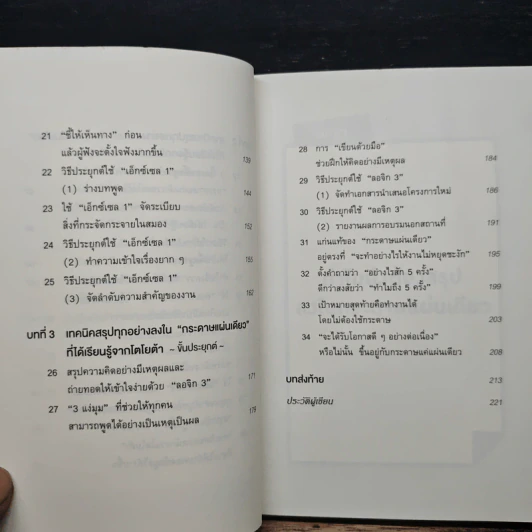 21 "ชี้ให้เห็นทาง" ก่อน
แล้วผู้ฟังจะตั้งใจฟังมากขึ้น 139
22 วิธีประยุกต์ใช้ "เอ็กซ์เซล 1"
(1) ร่างบทพูด 144
23 ใช้ "เอ็กซ์เซล 1" จัดระเบียบ
สิ่งที่กระจัดกระจายในสมอง 152
24 วิธีประยุกต์ใช้ "เอ็กซ์เซล 1"
(2) ทำความเข้าใจเรื่องยาก ๆ 155
25 วิธีประยุกต์ใช้ "เอ็กซ์เซล 1"
(3) จัดลำดับความสำคัญของงาน
บทที่ 3 เทคนิคสรุปทุกอย่างลงใน "กระดาษแผ่นเดียว"
ที่ได้เรียนรู้จากโตโยต้า - ขั้นประยุกต์ -
26 สรุปความคิดอย่างมีเหตุผลและ
ถ่ายทอดให้เข้าใจง่ายด้วย "ลอจิก 3" 171
27 "3 แง่มุม" ที่ช่วยให้ทุกคน
สามารถพูดได้อย่างเป็นเหตุเป็นผล 179
28 การ "เขียนด้วยมือ"
ช่วยฝึกให้คิดอย่างมีเหตุผล 184
29 วิธีประยุกต์ใช้ "ลอจิก 3"
(1) จัดทำเอกสารนำเสนอโครงการใหม่ 186
30 วิธีประยุกต์ใช้ "ลอจิก 3"
(2) รายงานผลการอบรมนอกสถานที่ 191
31 แก่นแท้ของ "กระดาษแผ่นเดียว"
อยู่ตรงที่ "จะทำอย่างไรให้งานไม่หยุดชะงัก" 195
32 ตั้งคำถามว่า "อย่างไรสัก 5 ครั้ง"
ดีกว่าสงสัยว่า "ทำไมถึง 5 ครั้ง" 199
33 เป้าหมายสุดท้ายคือทำงานได้
โดยไม่ต้องใช้กระดาษ 203
34 "จะได้รับโอกาสดี ๆ อย่างต่อเนื่อง"
หรือไม่นั้น ขึ้นอยู่กับกระดาษแค่แผ่นเดียว 208
บทส่งท้าย 213
ประวัติผู้เขียน 221